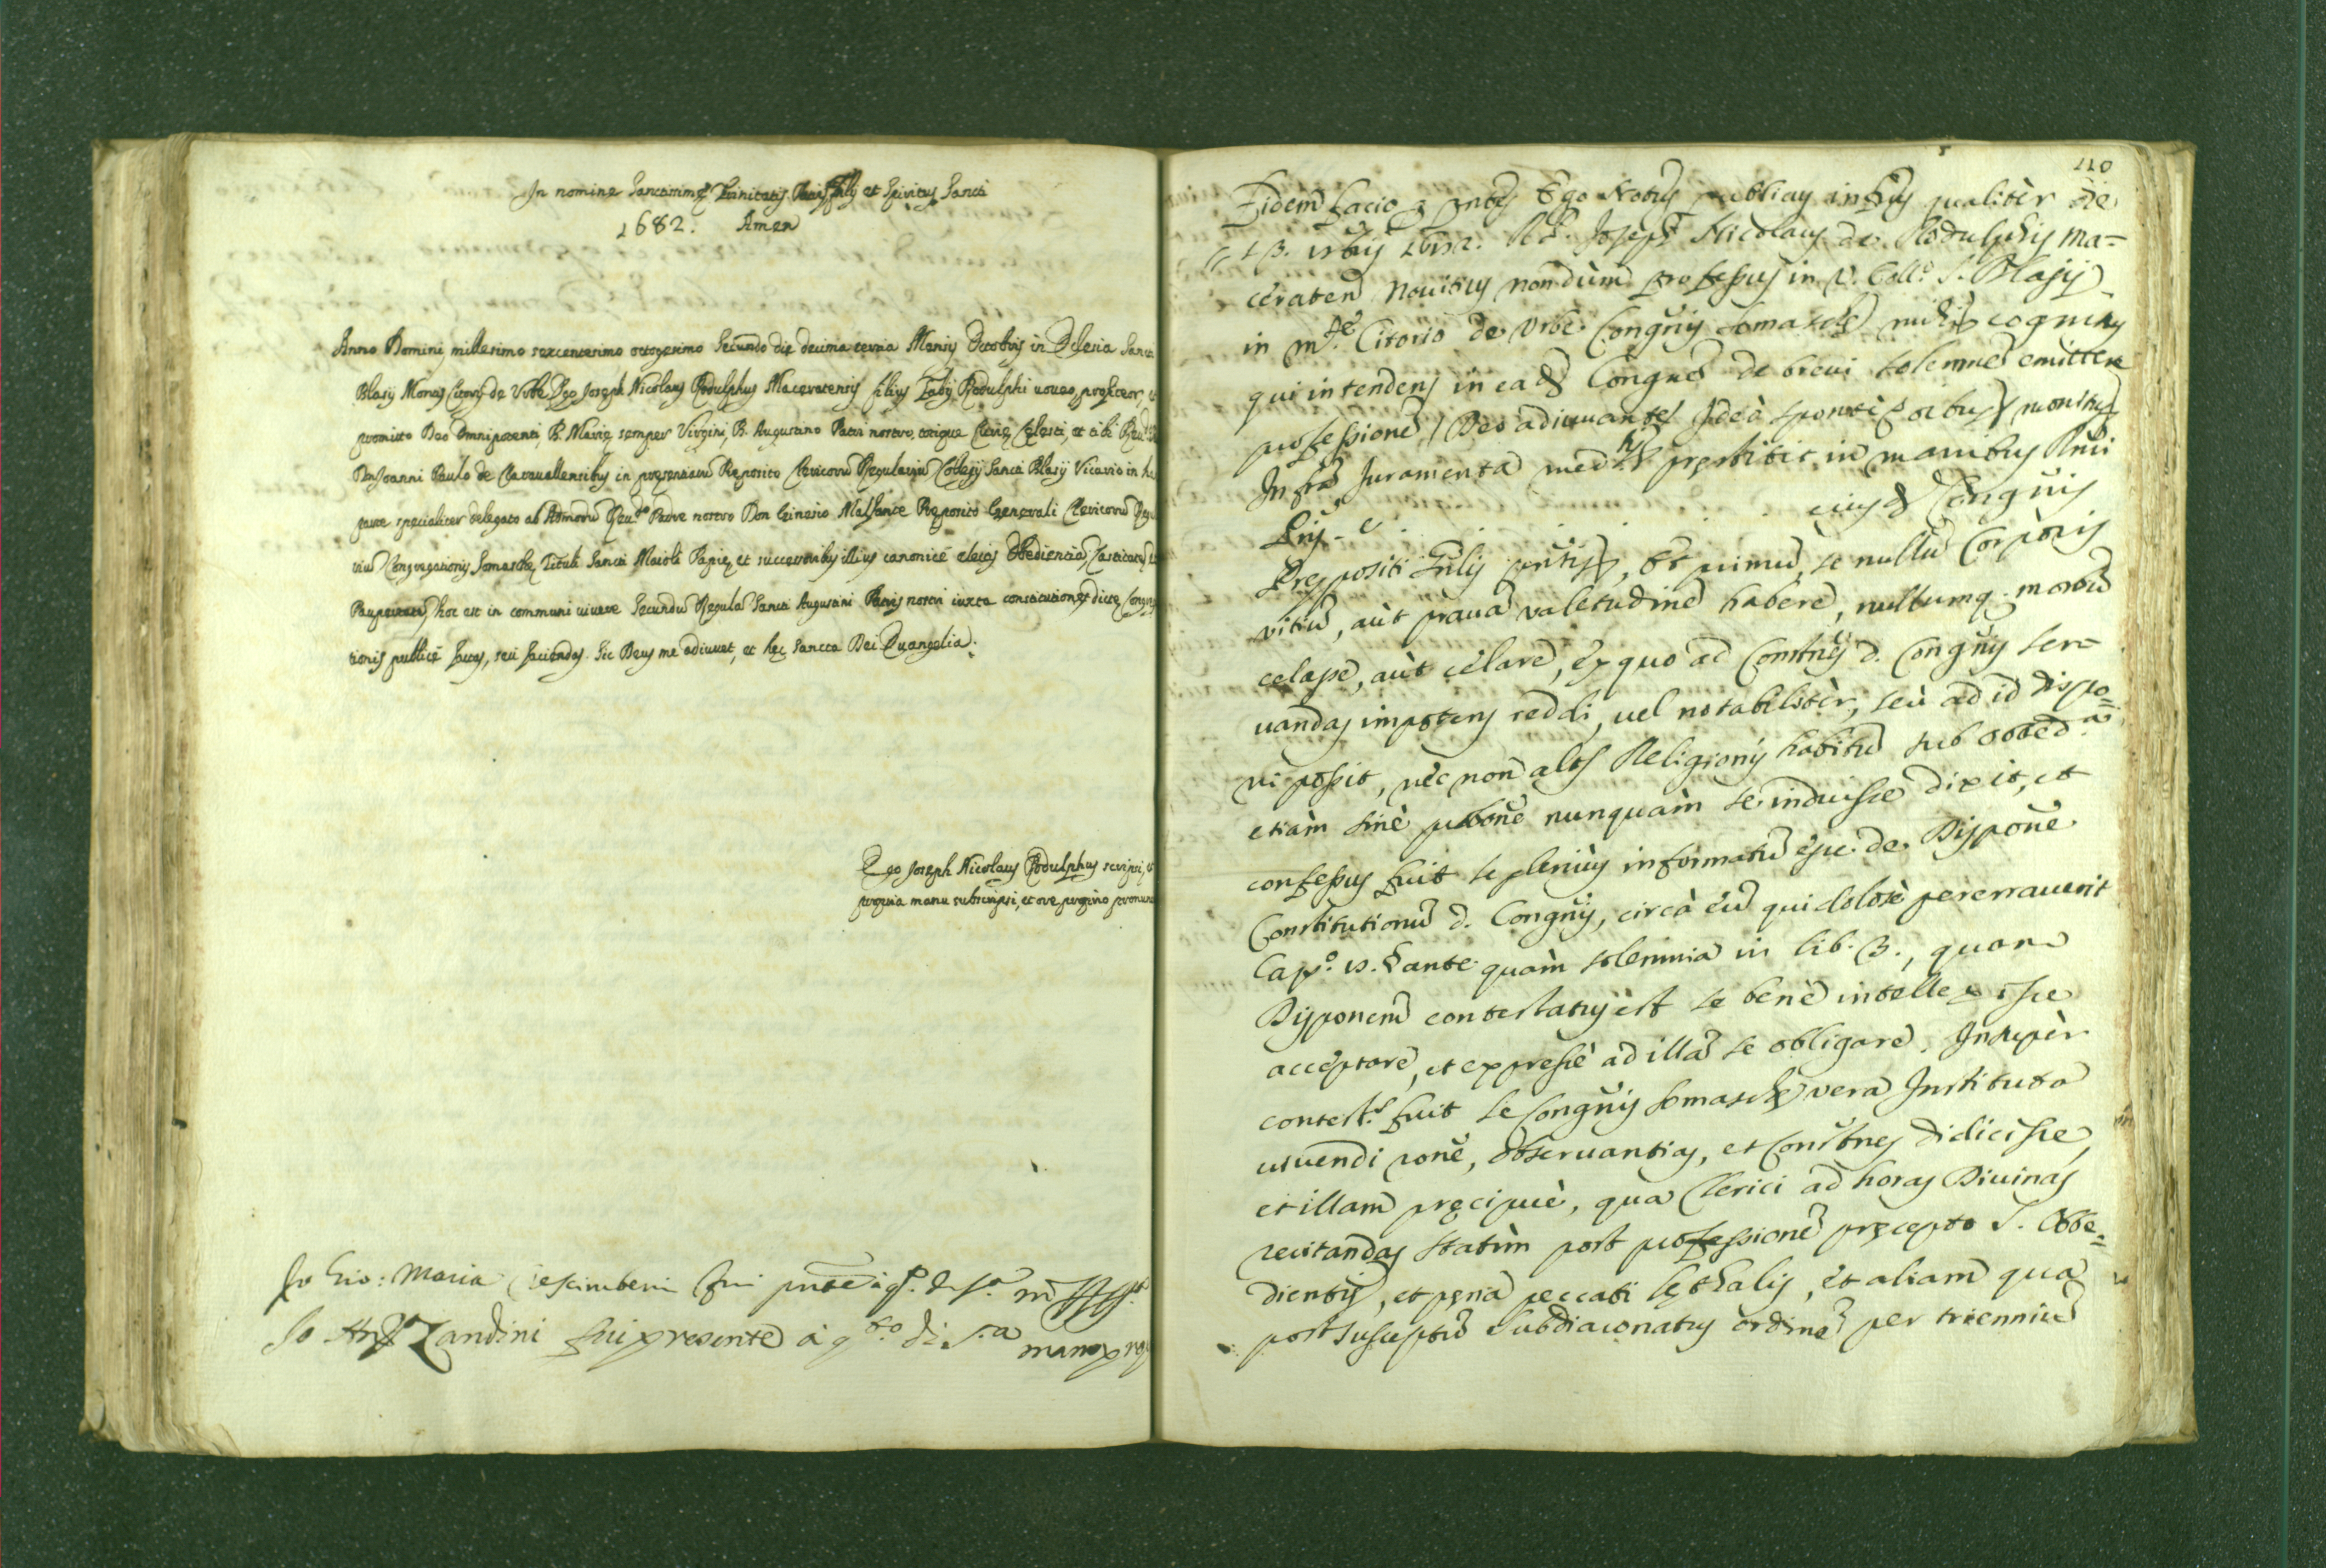 In nomine Sanctissimę Trinitatis Patris Filij et Spiritus Sancti
1682. Amen
Anno Domini millesimo sexcentesimo octogesimo secundo die decima tertia Mensis Octobris in Ecclesia Sancti
Blasij Montis Citorij de Urbe Ego Joseph Nicolaus Rodulphus Maceratensis filius Rodulphi uoueo, profiteor, et
promitto Deo Omnipotenti, B. Marię semper Virgini, B. Augustino Patri nostro, totique Curię Celesti, et tibi Reu.do
Don Joanni Paulo de Clarauallensibus in presentiarū Preposito Clericorū Regulariū Collegij Sancti Blasij Vicario in hac
parte specialiter delegato ab Admodū Reu.do Patre nostro Don Preposito Generali Clericorū Regu
riū Congregationis Somaschę, Tituli Sancti Maioli Papię, et successoribus illius canonicè electis Obedientiā, Castitatē, et
Paupertatē, hoc est in communi uiuere secundū Regulā Sancti Augustini Patris nostri iuxta constitutiones dicte Congrega
tionis publicè factas, seu faciendas. Sic Deus me adiuuet, et hęc Sancta Dei Euangelia.
Ego Joseph Nicolaus Rodulphus scripsi, et
propria manu subscripsi, et ore proprio pronun
Io Gio: Maria Crescimbeni fui pnte à q.to di s.a
Io Zandini fui presente à q.to di s.a mano pro
110
Fidem facio p pntes Ego Notus publicus infrus qualiter die
13. 1682. Joseph Nicolaus de Rodulphis Ma=
ceraten Nouitius nondùm professus in V. Coll.o S. Blasij
in M.te Citorio de Urbe Congnis Somaschę mihi cognitus
qui intendens in eadē Congne de breui solemnē emittere
professionē, Deo adiuuante, Ideò sponte monitus
Infra Juramenta med.o prestitit in manibus Rmi
eiusd Congnis
Prępositi Gnlis, Et primū, se nullū Corporis
vitiū, aùt prauā valetudinē haberè, nullumq. morbū
celasse, aùt celarè, ex quo ad Constnes d. Congnis ser=
uandas impotens reddi, uel notabilitèr, seù ad id dispo=
ni possit, nèc non alts Religionis habitū sub obbed.a
etiàm sinè pbone nunquàm se induisse dixit, et
confessus fuit se plenius informatū esse de Dispone
Constitutionū d. Congnis, circà eū qui dolosè pererrauerit
Cap.o antè quàm solemnia in lib. 3., quam
Disponem contestatus est se benè intellexisse
acceptarè, et expressè ad illā se obligarè. Insupèr
contest.s fuit se Congnis Somaschę vera Instituta
uiuendi rone, obseruantias, et Constnes didicisse,
et illam pręcipuè, qua Clerici ad horas Diuinas
recitandas statìm post professionē pręcepto S. Obbe=
dientię, et pęna peccati lęthalis, et aliam qua
post susceptū subdiaconatus ordinē per trienniū